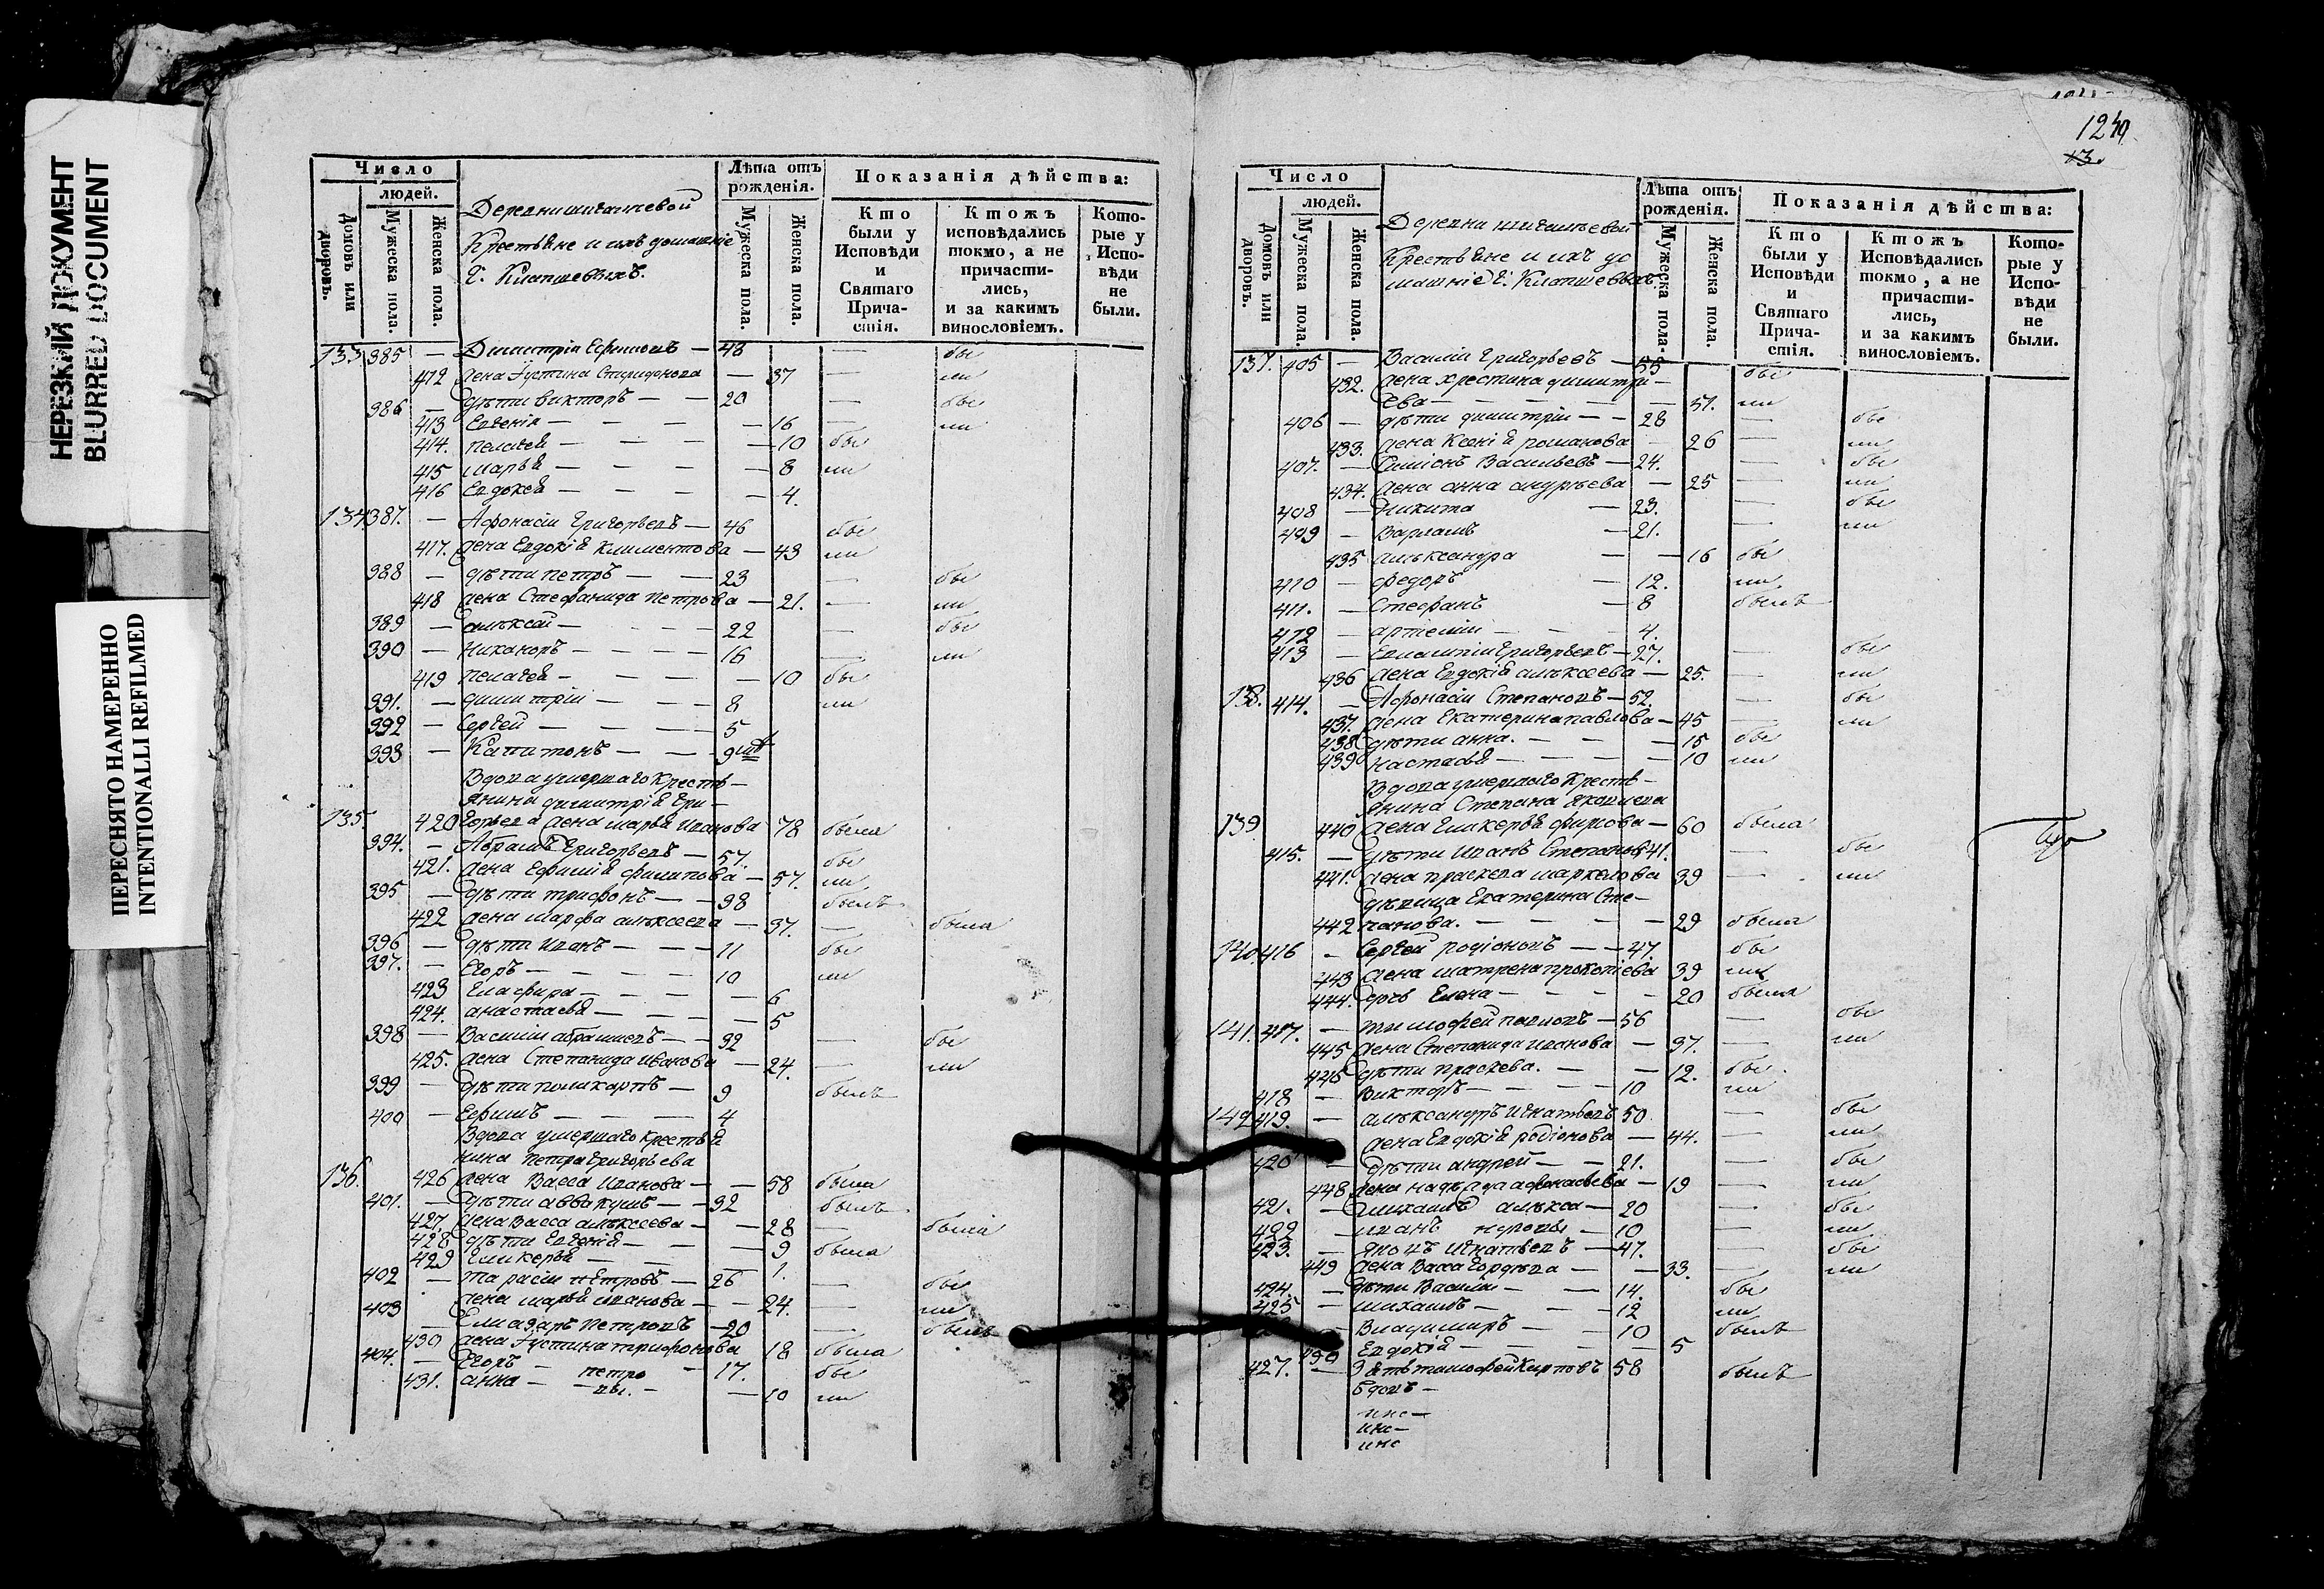 НЕРЕЗКИЙ ДОКУМЕНТ
BLURRED DOCUMENT
ПЕРЕСНЯТО НАМЕРЕННО
INTENTIONALLI REFILMED
Число
людей.
Домовъ или дворовъ.
Мужеска пола.
Женска пола.
Крестьяне и ихъ домашніе
Лѣта отъ рожденія.
Мужеска пола.
Женска пола.
Показанія дѣйства:
Кто были у Исповѣди и Святаго Прича-стія.
Ктожъ исповѣдались токмо, а не причасти-лись, и за какимъ винословіемъ.
Кото-рые у Испо-вѣди не были.
133 385 — Димитрій Ефимовъ — 48 — бы
412 жена Іустина Спиридонова — 37 — ли
386 — дѣти Викторъ — — 20 — бы
413 Евгенія — — — — 16 — ли
414. Пелагея — — — — 10 бы
415 Марья — — — — 8 ли
416 Евдокея — — — — 4.
134 387. — Афонасій Григорьевъ — 46 бы
417. жена Евдокія Климентова — 43 ли
388 — дѣти Петръ — — 23 — бы
418 жена Стефанида Петрова — 21. — ли
389 — Алексѣй — — — — 22 — бы
390 — Никаноръ — — — — 16 — ли
419 Пелагея — — — — 10 бы
391. — Димитрій — — — 8 ли
392 — Сергей — — — — 5
393 — Капитонъ — — — 9
Вдова умершаго кресть-
янина Димитрія Гри-
135. 420 горьева жена Марья Иванова 78 была
394. — Абрамъ Григорьевъ — 57. бы
421. жена Ефимія Филипова — 57. ли
395 — дѣти Трифонъ — — 38 былъ
422 жена Марфа Алексеева — 37. — была
396 — дѣти Иванъ — — — 11 бы
397. — Егоръ — — — — 10 ли
423 Глафира — — — — 6
424. Анастасья — — — — 5
398 — Василій Абрамовъ — — 32 — бы
425. жена Степанида Иванова — 24. — ли
399 — дѣти Поликарпъ — 9 былъ
400 — Ефимъ — — — — 4
Вдова умершаго крестья
нина Петра Григорьева
136. 426 жена Васса Иванова — — 58 была
401. — дѣти Аввакумъ — — 32 былъ
427. жена Васса Алексеева — — 28 — была
428 дѣти Евгенія — — — 9 была
429 Гликерья — — — 1.
402 — Тарасій Петровъ — 26 — бы
жена Марья Иванова — — 24. — ли
403 — Елиазаръ Петровъ — 20 — былъ
430 жена Іустина Трифонова 18 была
404. — Егоръ — петро — 17. бы
431. Анна — вы. — — 10 ли
1249
13
Число
людей.
Домовъ или дворовъ.
Мужеска пола.
Женска пола.
Крестьяне и ихъ до
Лѣта отъ рожденія.
Мужеска пола.
Женска пола.
Показанія дѣйства:
Кто были у Исповѣди и Святаго Прича-стія.
Ктожъ Исповѣдались токмо, а не причасти-лись, и за какимъ винословіемъ.
Кото-рые у Испо-вѣди не были.
137. 405 — Василій Григорьевъ — 55 бы
432. жена Хрестина Димитрі-
ева — — — — — 51. ли
406 — дѣти Димитрій — — 28 — бы
433. жена Ксенія Романова — 26 — ли
407. — Симіонъ Васильевъ — 24. — бы
434. жена Анна Андреева — 25 — ли
408 — Никита — 23. — бы
409 — Варламъ — 21. — ли
435 Александра — — 16 бы
410 — Федоръ — 12. ли
411. — Стефанъ — 8 былъ
412 — Артемій — — — 4.
413 — Григорьевъ — 27. — бы
436 жена Евдокія Алексеева — 25. — ли
138. 414. — Афонасій Степановъ — 52. — бы
437. жена Екатерина Павлова — 45 — ли
438 дѣти Анна. — — — — 15 бы
439 Настасья — — — — 10 ли
Вдова умершаго кресть-
янина Степана Яковлева
139 440 жена Гликерья Фирсова — 60 была
415. — дѣти Иванъ Степановъ 41. — бы
441. жена Праскева Маркелова 39 — ли
дѣвица Екатерина Сте-
442 панова. — — — — 29 была
140. 416 — Сергей Родіоновъ — — 47. бы
443 жена Матрена Прокопіева 39 ли
444. дочь Елена — — — — 20 была
141. 417. — Тимофей Павловъ — 56 — бы
445 жена Степанида Иванова — 37. — ли
446 дѣти Праскева. — — — 12. бы
418 — Викторъ — — — — 10 ли
142 419. — Александръ Игнатьевъ 50 — бы
жена Евдокія Родіонова — 44. — ли
420 — дѣти Андрей — — 21. — бы
448 жена Надежда Афонасьева — 19 — ли
421. — Михаилъ алекса — 20 — бы
422 — Иванъ — 10 — ли
423. — Яковъ Игнатьевъ — 47. — бы
449 жена Васса Гордѣева — — 33. — ли
424. — дѣти Василій — — 14. бы
425 — Михаилъ — — — 12 ли
— Владимиръ — — 10 былъ
450 Евдокія — — — — 5
427. — Зять Тимофей Карповъ 58 былъ
вдовъ —